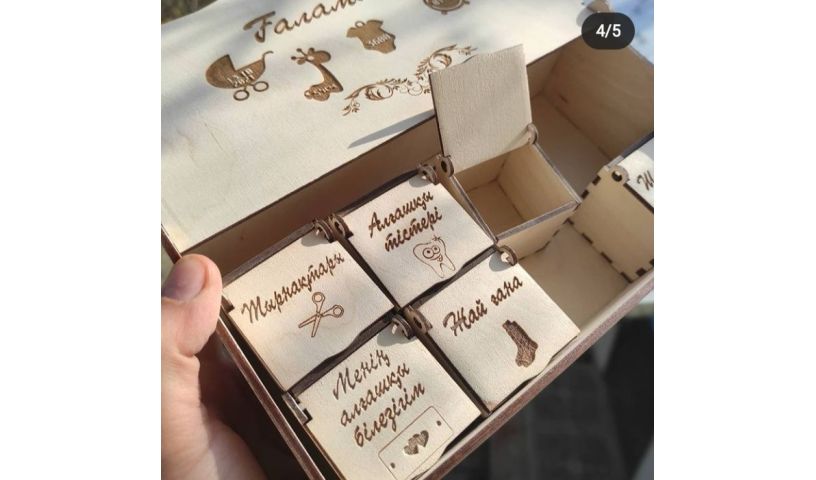 4/5
3600
Алғашқы
тістері
Тырнақтары
Жай ғана
Менің
алғашқы
білезігім